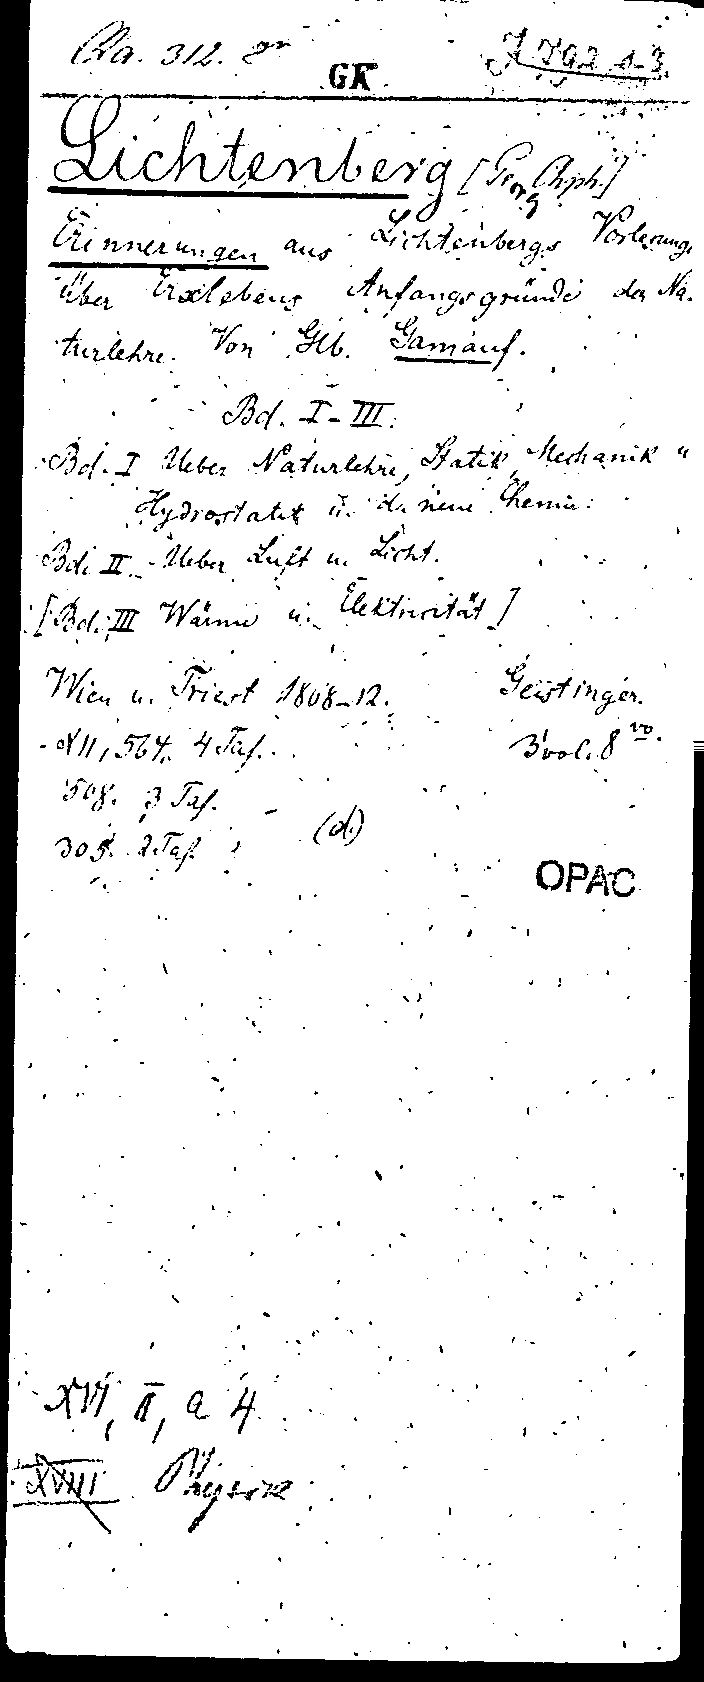 Ra. 312. 8º
GK
J 792 1-3.
Lichtenberg [Georg Chph.]
Erinnerungen aus Lichtenbergs Vorlesung.
über Erxlebens Anfangsgründe der Na-
turlehre. Von Glb. Gamauf.
Bd. I-III.
Bd. I Ueber Naturlehre, Statik, Mechanik u
Hydrostatik u. die neue Chemie.
Bd. II. Ueber Luft u. Licht.
[Bd. III Wärme u. Elektricität]
Wien u. Triest 1808-12. Geistinger.
XII, 564. 4 Taf. 3 vol. 8vo.
508. 3 Taf.
305. 2 Taf. (d.)
OPAC
XVI, II, a 4
XVIII Physik